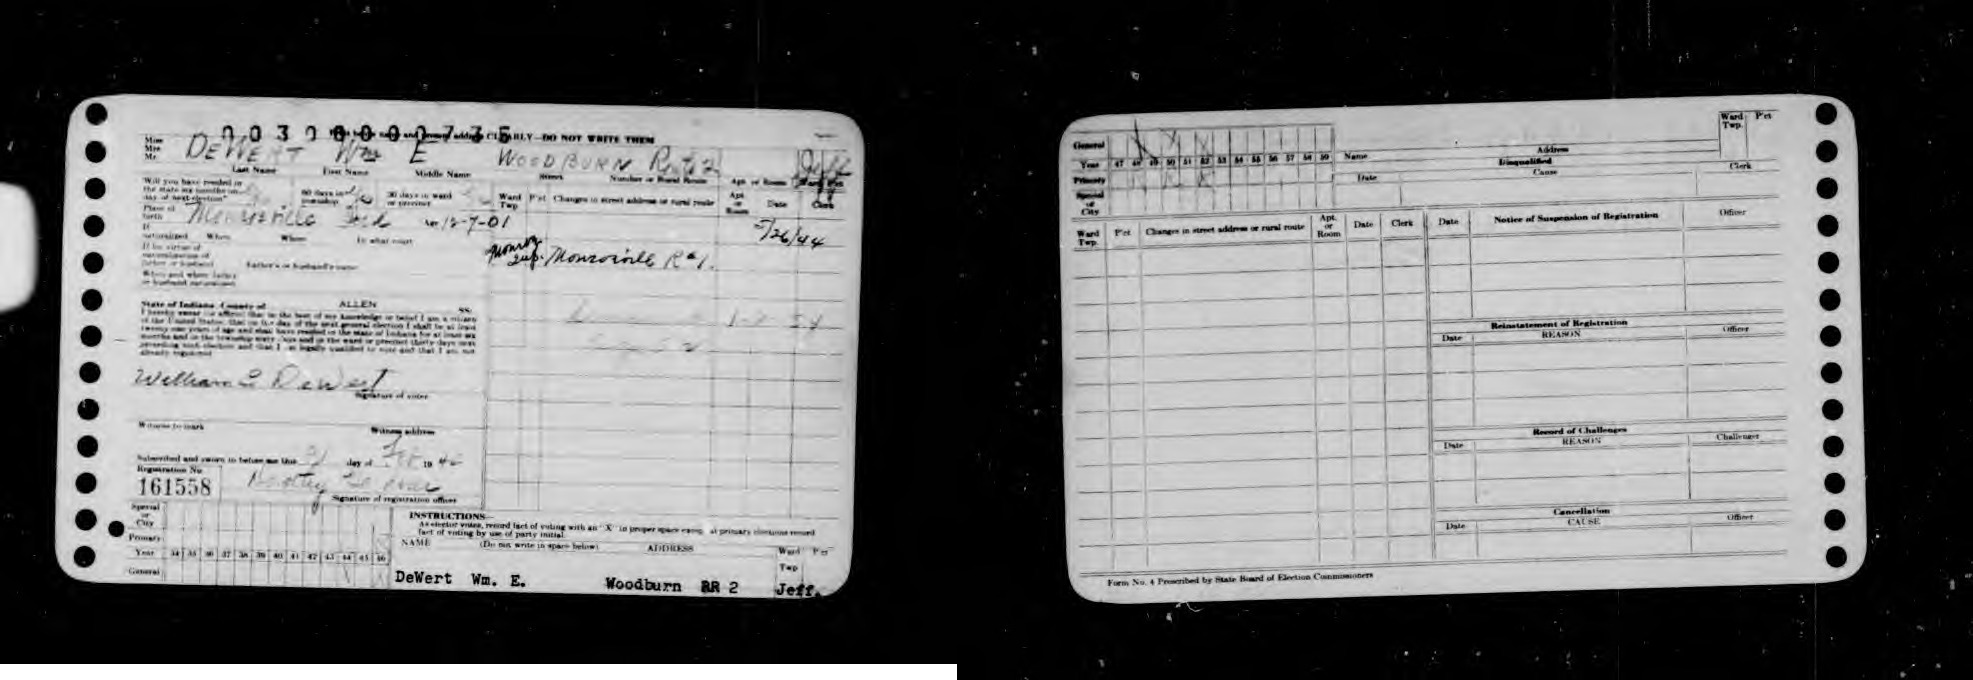 00300000735
CLEARLY—DO NOT WRITE THEM
Miss
Mrs.
Mr. DeWERT Wm E WOODBURN Rt 2 Jeff
Last Name First Name Middle Name Street Number or Rural Route Apt. or Room Ward P'ct
Will you have resided in
the state six months on
day of next election?
60 days in
township
30 days in ward
or precinct
Ward
Twp
P'ct
Changes in street address or rural route
Apt.
or
Room
Date
Clerk
Place of
birth Monroeville Ind 12-7-01
If
naturalized When Where In what court
If by virtue of
naturalization of
father or husband Father's or husband's name
When and where father
or husband naturalized
Monroe
Monroeville R#1. 5/26/44
State of Indiana County of ALLEN SS:
I hereby swear (or affirm) that to the best of my knowledge or belief I am a citizen
of the United States, that on the day of the next general election I shall be at least
twenty-one years of age and shall have resided in the state of Indiana for at least six
months and in the township sixty days and in the ward or precinct thirty days next
preceding such election and that I am legally qualified to vote and that I am not
already registered
William E DeWert
Signature of voter
Witness to mark Witness address
Subscribed and sworn to before me this day of 19
Registration No.
161558
Signature of registration officer
Special
or
City
Primary
Year 34 35 36 37 38 39 40 41 42 43 44 45 46
General
INSTRUCTIONS—
As elector votes, record fact of voting with an "X" in proper space except at primary elections record
fact of voting by use of party initial.
NAME (Do not write in space below) ADDRESS Ward P'ct
Twp
DeWert Wm. E. Woodburn RR 2 Jeff.
General
Year 47 48 49 50 51 52 53 54 55 56 57 58 59
Primary
Special
or
City
Name Address
Ward
Twp.
P'ct
Disqualified
Date Cause Clerk
Ward
Twp.
P'ct
Changes in street address or rural route
Apt.
or
Room
Date
Clerk
Date Notice of Suspension of Registration Officer
Reinstatement of Registration
Date REASON Officer
Record of Challenges
Date REASON Challenger
Cancellation
Date CAUSE Officer
Form No. 4 Prescribed by State Board of Election Commissioners